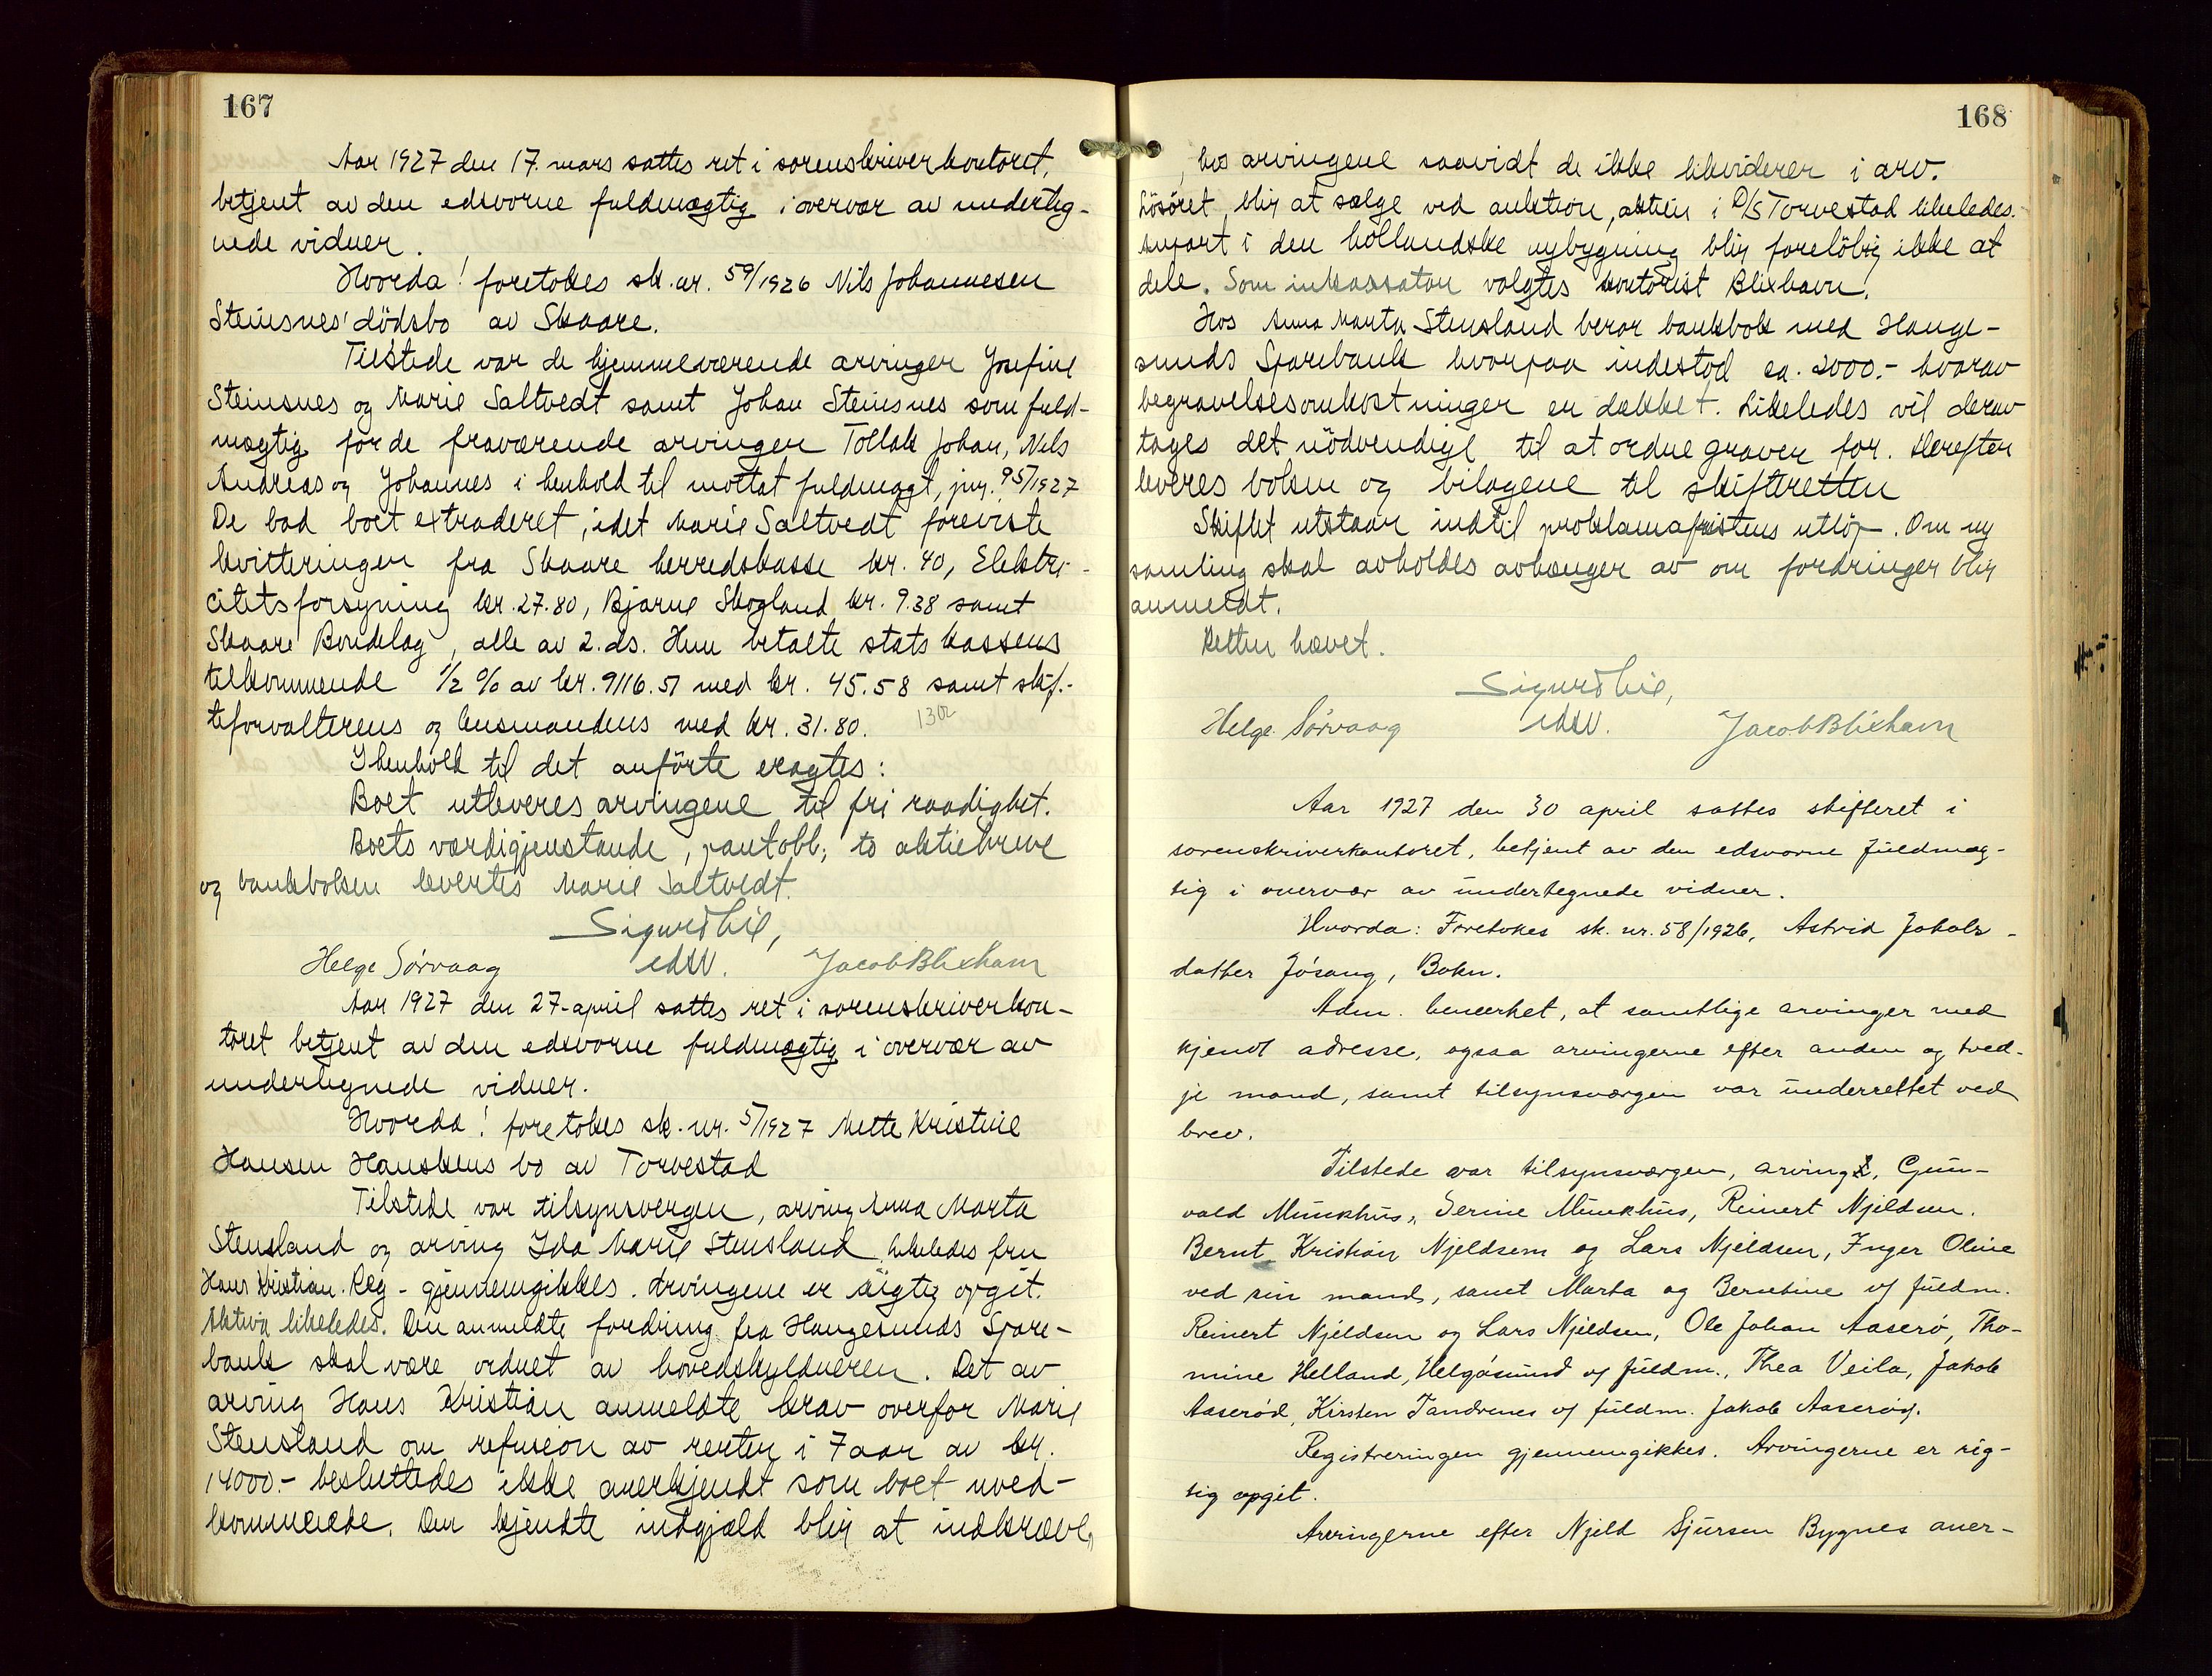 167
Aar 1927 den 17. mars sattes ret i sorenskriverkontoret,
betjent av den edsvorne fuldmægtig i overvær av underteg-
nede vidner.
Hvorda! foretokes sk. nr. 59/1926 Nils Johannesen
Steinsnes' dödsbo av Skaare.
Tilstede var de hjemmelværende arvinger Josefine
Steinsnes og Marie Saltvedt samt Johan Steinsnes som fuld-
mægtig for de fraværende arvinger Tollak Johan, Nils
Andreas og Johannes i henhold til mottat fuldmagt, jnr. 95/1927
De bad boet extraderet, idet Marie Saltvedt foreviste
kvitteringer fra Skaare herredskasse kr. 40, Elektri-
citetsforsyning kr. 27.80, Bjarne Skogland kr. 9.38 samt
Skaare Bondelag, alle av 2. ds. Hun betalte statskassens
tilkommende 1/2 % av kr. 9116.51 med kr. 45.58 samt skif-
teforvalterens og lensmandens med kr. 31.80.
I henhold til det anförte eragtes:
Boet utleveres arvingene til fri raadighet.
Boets værdigjenstande, pantobl., to aktiebreve
og bankboken levertes Marie Saltvedt.
Sigurd Lie,
edsv.
Helge Sörvaag Jacob Blixhavn
Aar 1927 den 27. april sattes ret i sorenskriverkon-
toret betjent av den edsvorne fuldmægtig i overvær av
undertegnede vidner.
Hvorda! foretokes sk. nr. 5/1927 Mette Kristine
Hansen Hauskens bo av Torvestad
Tilstede var tilsynsvergen, arving Anna Marta
Stensland og arving Ida Marie Stensland likeledes fru
Hans Kristian. Reg - gjennemgikkes. Arvingene er rigtig opgit.
Aktiva likeledes. Den anmeldte fordring fra Haugesunds Spare-
bank skal være ordnet av hovedskyldneren. Det av
arving Hans Kristian anmeldte krav overfor Marie
Stensland om refusion av renter i 7 aar av kr.
14000.- besluttedes ikke anerkjendt som boet uved-
kommende. Den kjendte indgjæld blir at indkræve
168
hos arvingene saavidt de ikke likviderer i arv.
Lösöret blir at sælge ved auktion, aktien i D/S Torvestad likeledes.
Anpart i den hollandske nybygning blir forelöbig ikke at
dele. Som inkassator valgtes kontorist Blixhavn.
Hos Anna Marta Stensland beror bankbok med Hauge-
sunds Sparebank hvorpaa indestod ca. 2000.- hvorav
begravelsesomkostninger er dækket. Likeledes vil derav
tages det nödvendige til at ordne graven for. Derefter
leveres boken og bilagene til skifteretten
Skiftet utstaar indtil proklamafristens utlöp. Om ny
samling skal avholdes avhænger av om fordringer blir
anmeldt.
Retten hævet.
Sigurd Lie,
edsv.
Helge Sörvaag Jacob Blixhavn
Aar 1927 den 30 april sattes skifteret i
sorenskriverkontoret, betjent av den edsvorne fuldmæg-
tig i overvær av undertegnede vidner.
Hvorda: Foretokes sk. nr. 58/1926, Astrid Jakobs-
datter Jösang, Bokn.
Adm. bemerket, at samtlige arvinger med
kjendt adresse, ogsaa arvingerne efter anden og tred-
je mand, samt tilsynsværgen var underrettet ved
brev.
Tilstede var tilsynsværgen, arving, Gun-
vald Munkhus, Serine Munkhus, Reinert Njeldsen.
Bernt Kristian Njeldsen og Lars Njeldsen, Inger Oline
ved sin mand, samt Marta og Berntine v/ fuldm.
Reinert Njeldsen og Lars Njeldsen, Ole Johan Aaserö, Tho-
mine Helland, Helgösund v/ fuldm., Thea Veila, Jakob
Aaseröd, Kirsten Tandrenes v/ fuldm. Jakob Aaseröd.
Registreringen gjennemgikkes. Arvingerne er rig-
tig opgit.
Arvingerne efter Njeld Sjursen Bygnes aner-